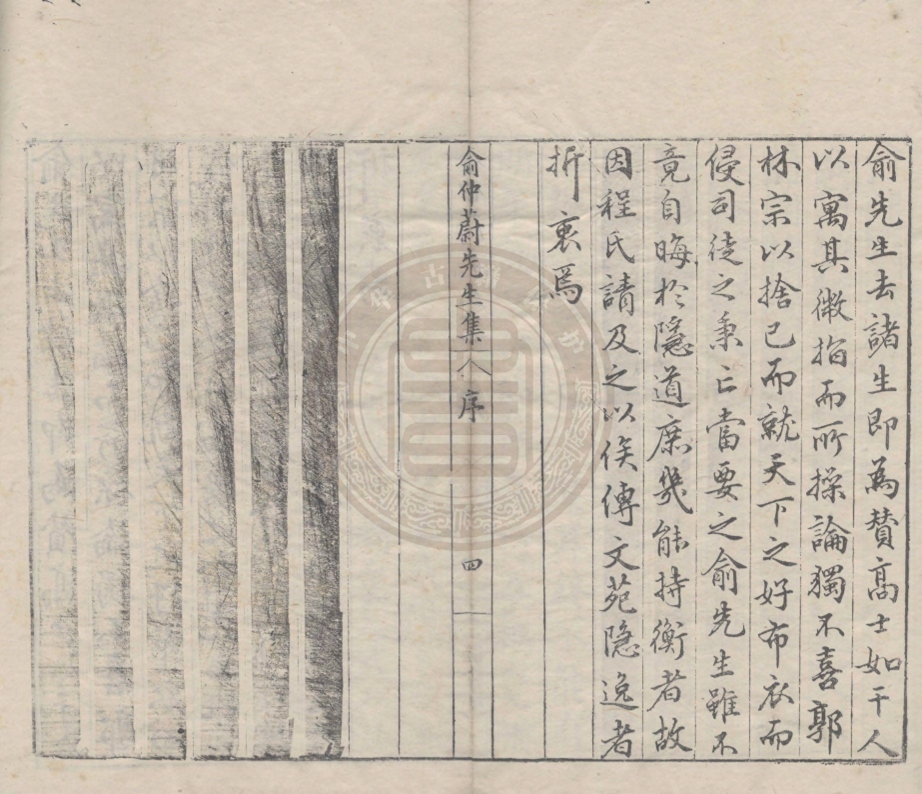 俞先生去諸生即為贊高士如干人
以寓其微指而所操論獨不喜郭
林宗以捨已而就天下之好布衣而
侵司徒之秉亡當要之俞先生雖不
竟自晦於隱道庶幾能持衡者故
因程氏請及之以俟傳文苑隱逸者
折衷焉
俞仲蔚先生集 序 四